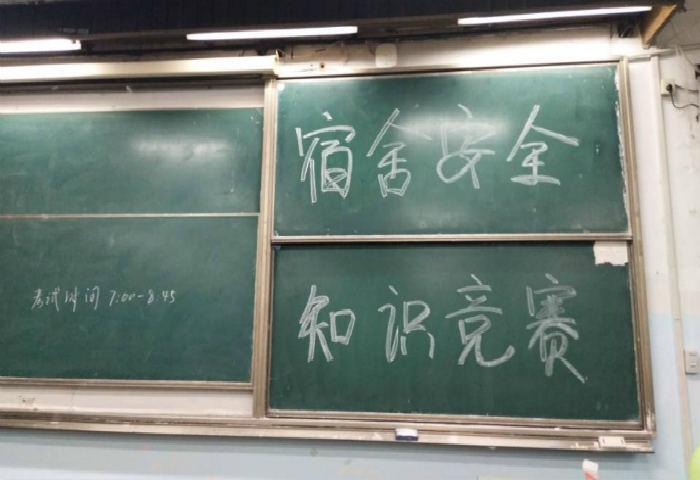 宿舍安全
知识竞赛
考试时间 7:00-8:45